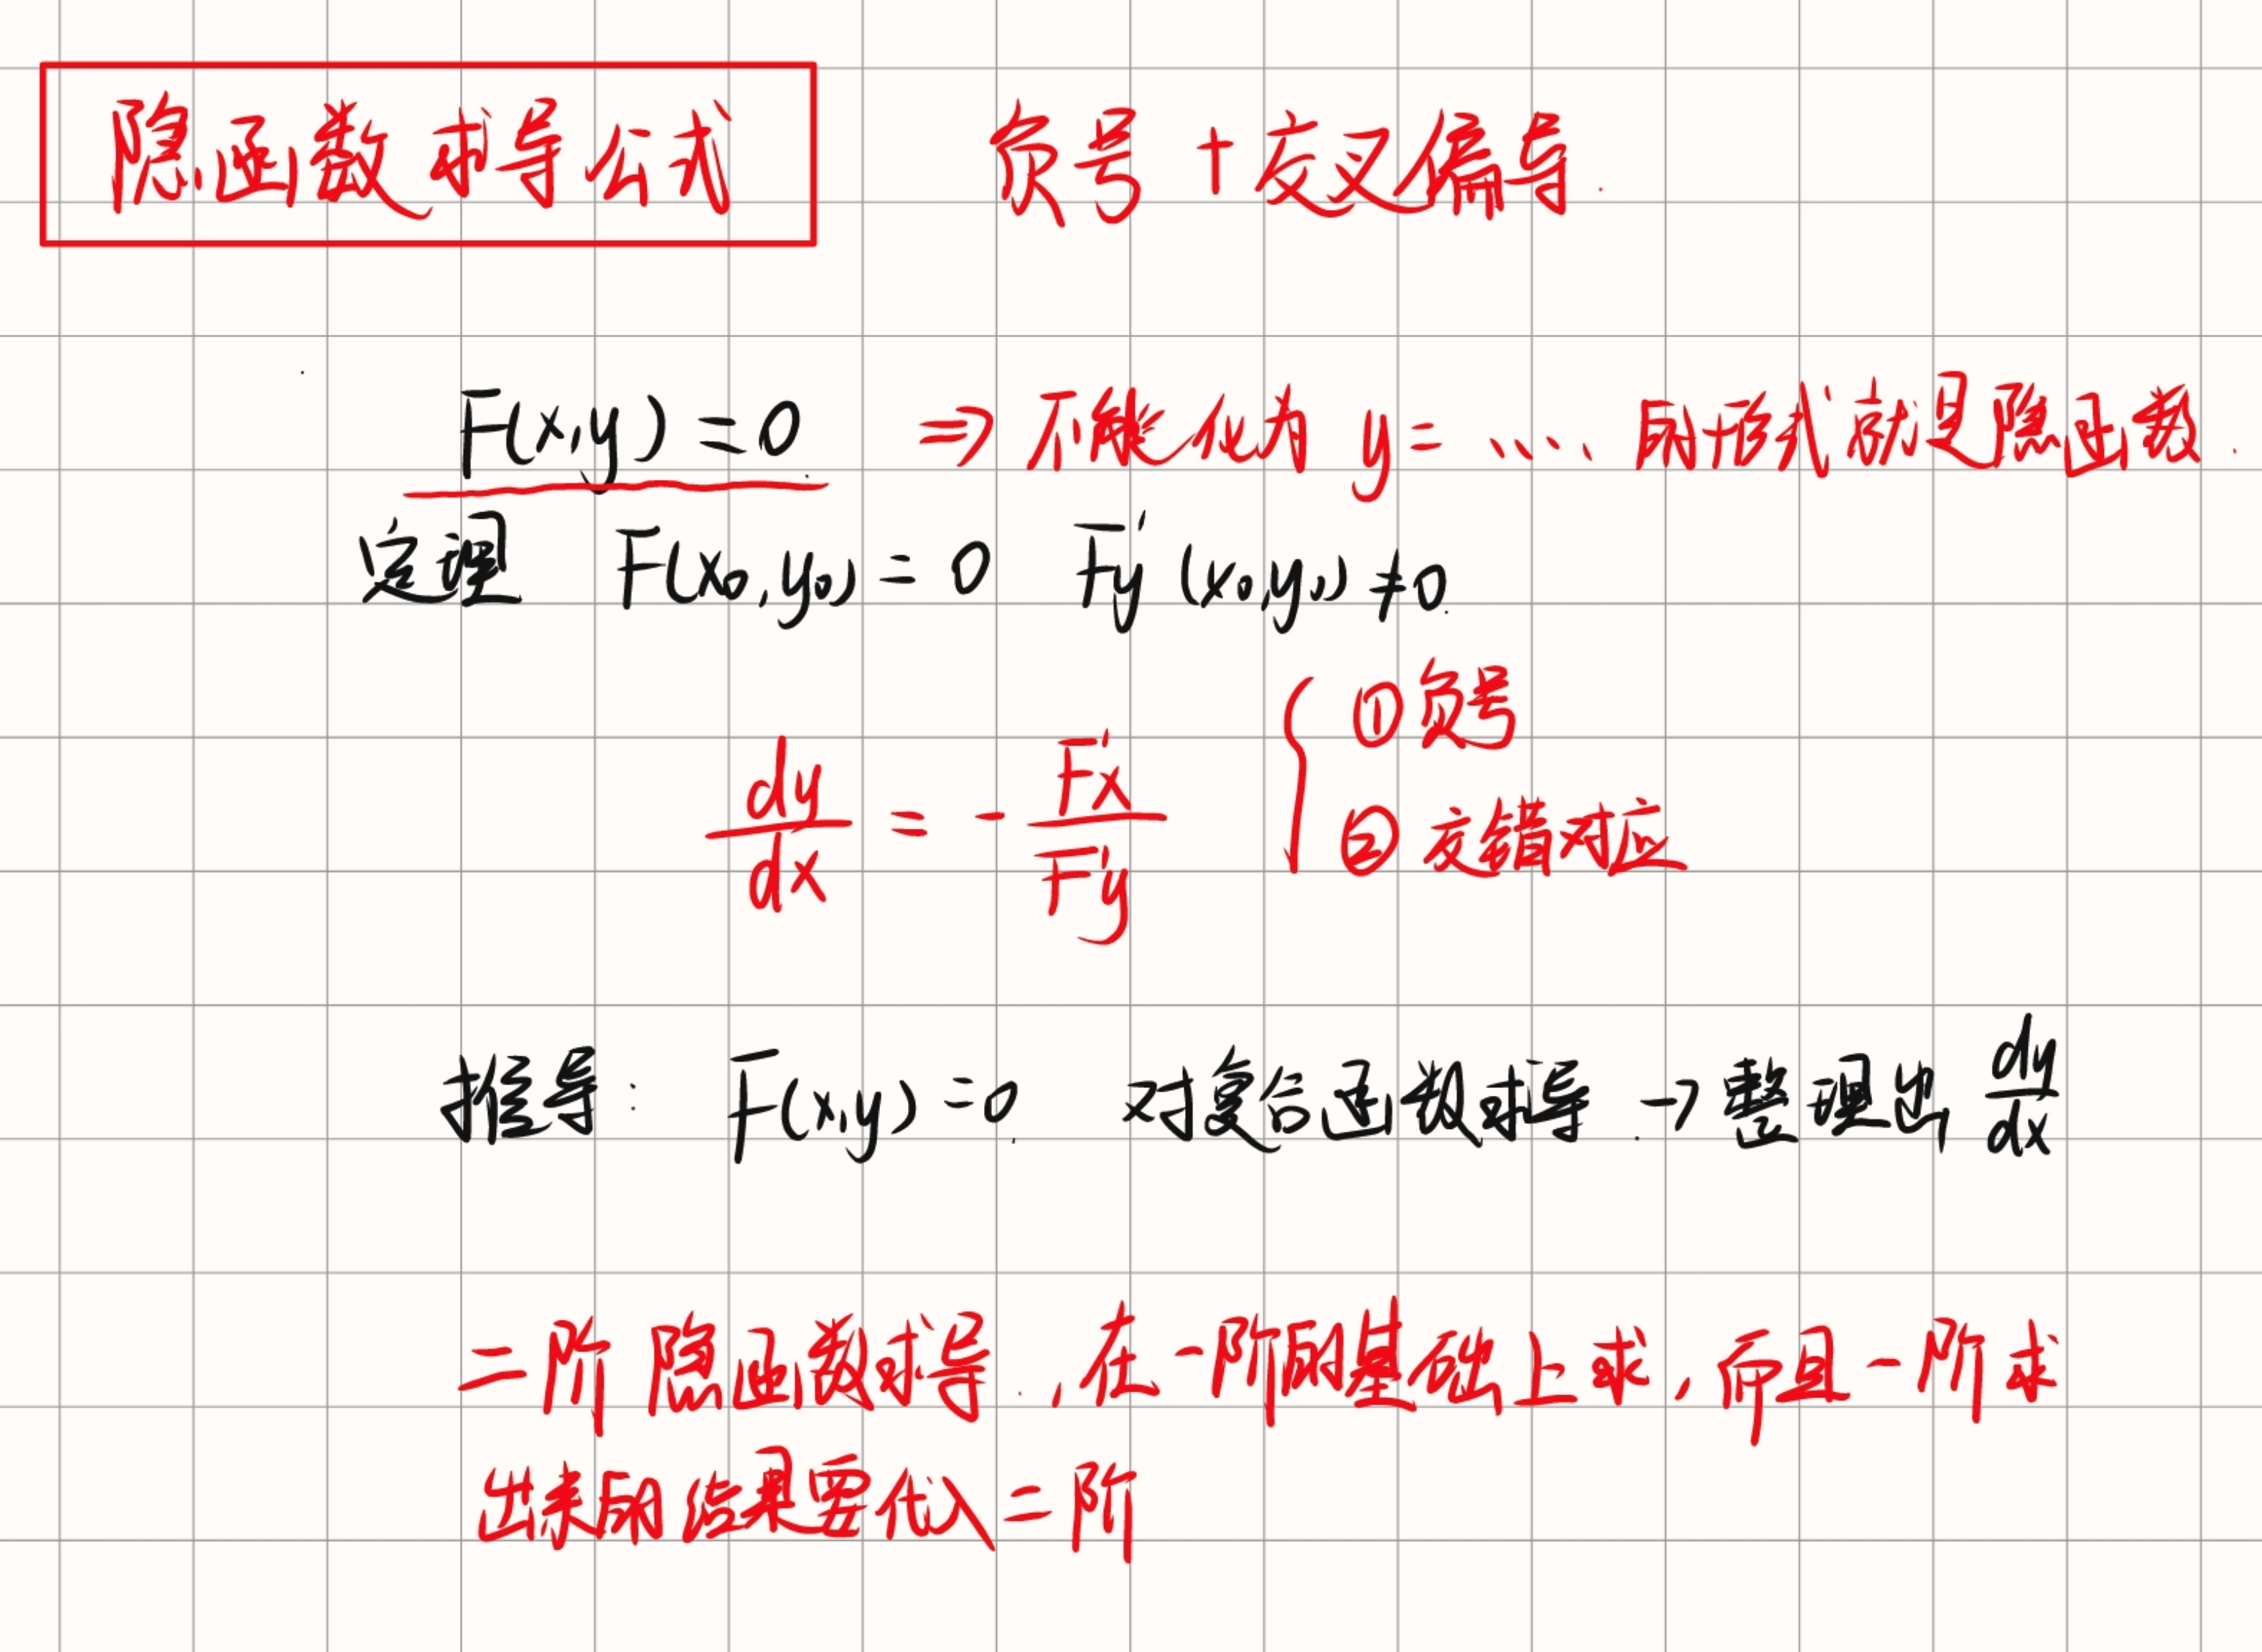 隐函数求导公式 负号+交叉偏导.
F(x,y)=0 ⇒ 不能化为 y=.... 的形式就是隐函数.
定理 F(x₀,y₀)=0 Fy'(x₀,y₀)≠0.
dy/dx = - Fx'/Fy' { ①负号
②交错对应
推导: F(x,y)=0. 对复合函数求导 → 整理出 dy/dx
二阶隐函数求导,在一阶的基础上求,而且一阶求
出来的结果要代入二阶